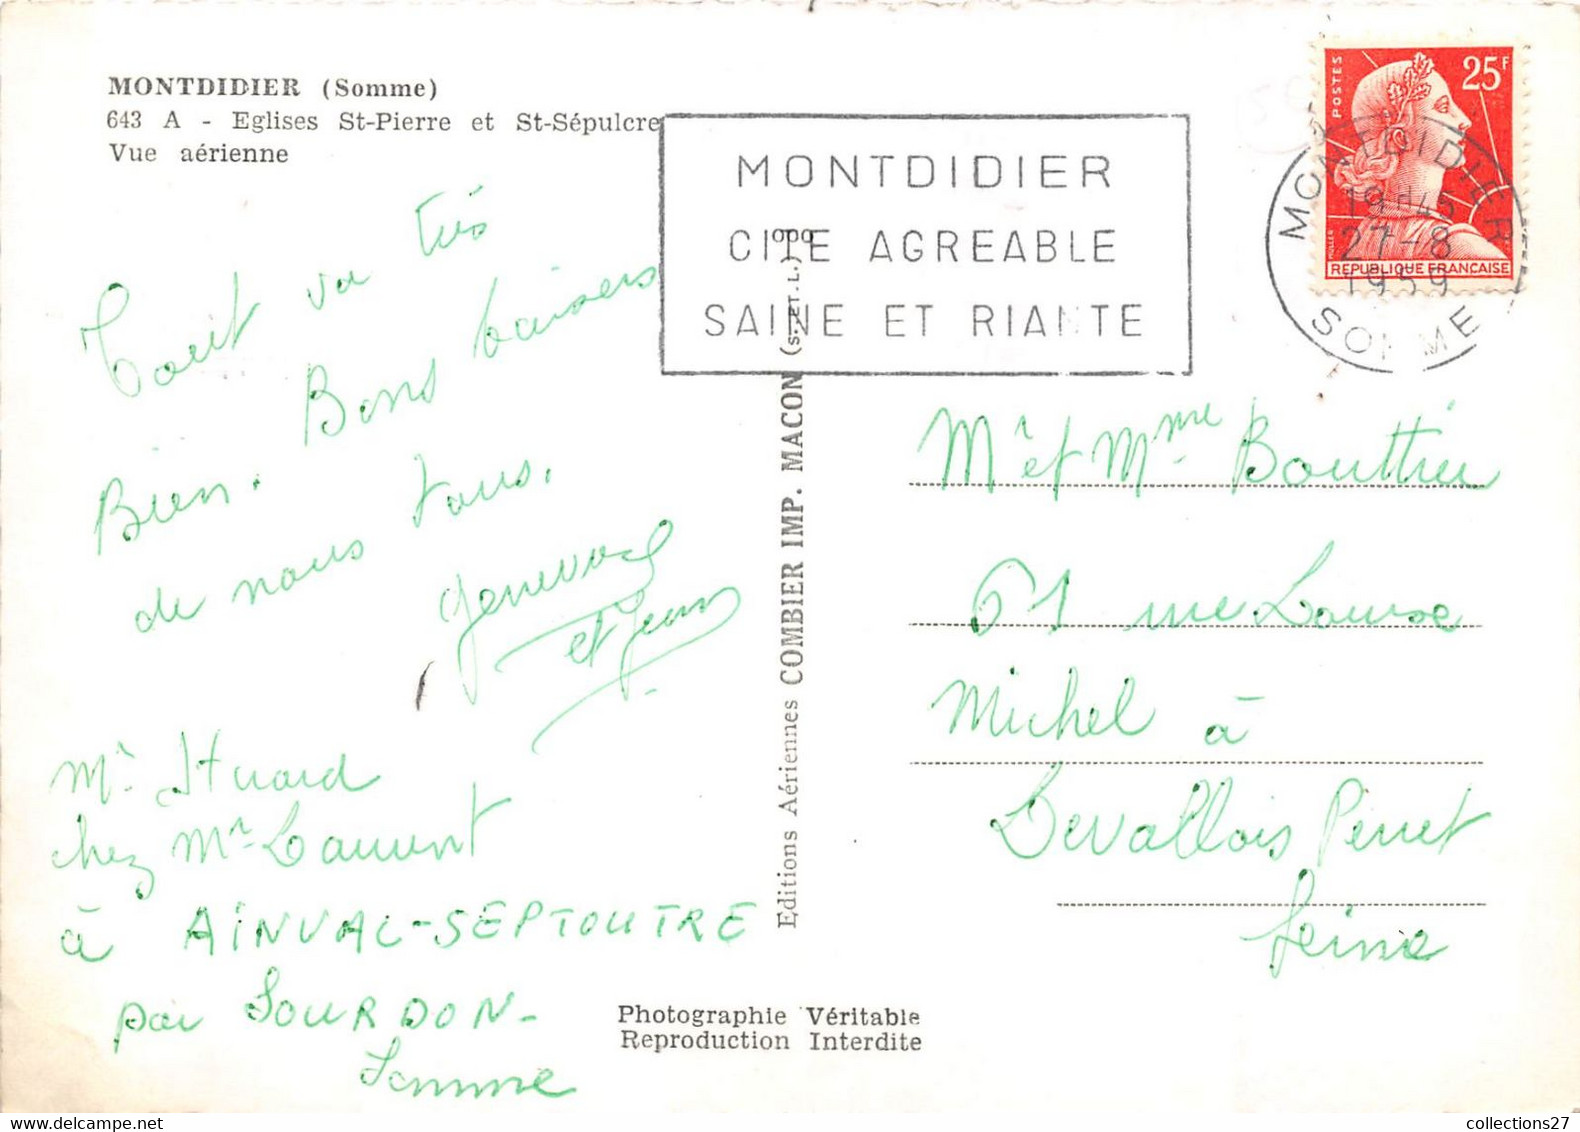 MONTDIDIER (Somme)
643 A - Eglises St-Pierre et St-Sépulcre
Vue aérienne
MONTDIDIER
CITE AGREABLE
SAINE ET RIANTE
POSTES
25F
REPUBLIQUE FRANCAISE
MONTDIDIER
19H45
27-8
1959
SOMME
Tout va très
Bien. Bons baisers
de nous tous.
et Jean
Mr
chez Mr Laurent
à AINVAL-SEPTOUTRE
par SOURDON-
Somme
Editions Aériennes COMBIER IMP. MACON (S.-ET-L.)
Mr et Mme Bouttier
61 rue Louise
Michel à
Levallois Perret
Seine
Photographie Véritable
Reproduction Interdite
collections27